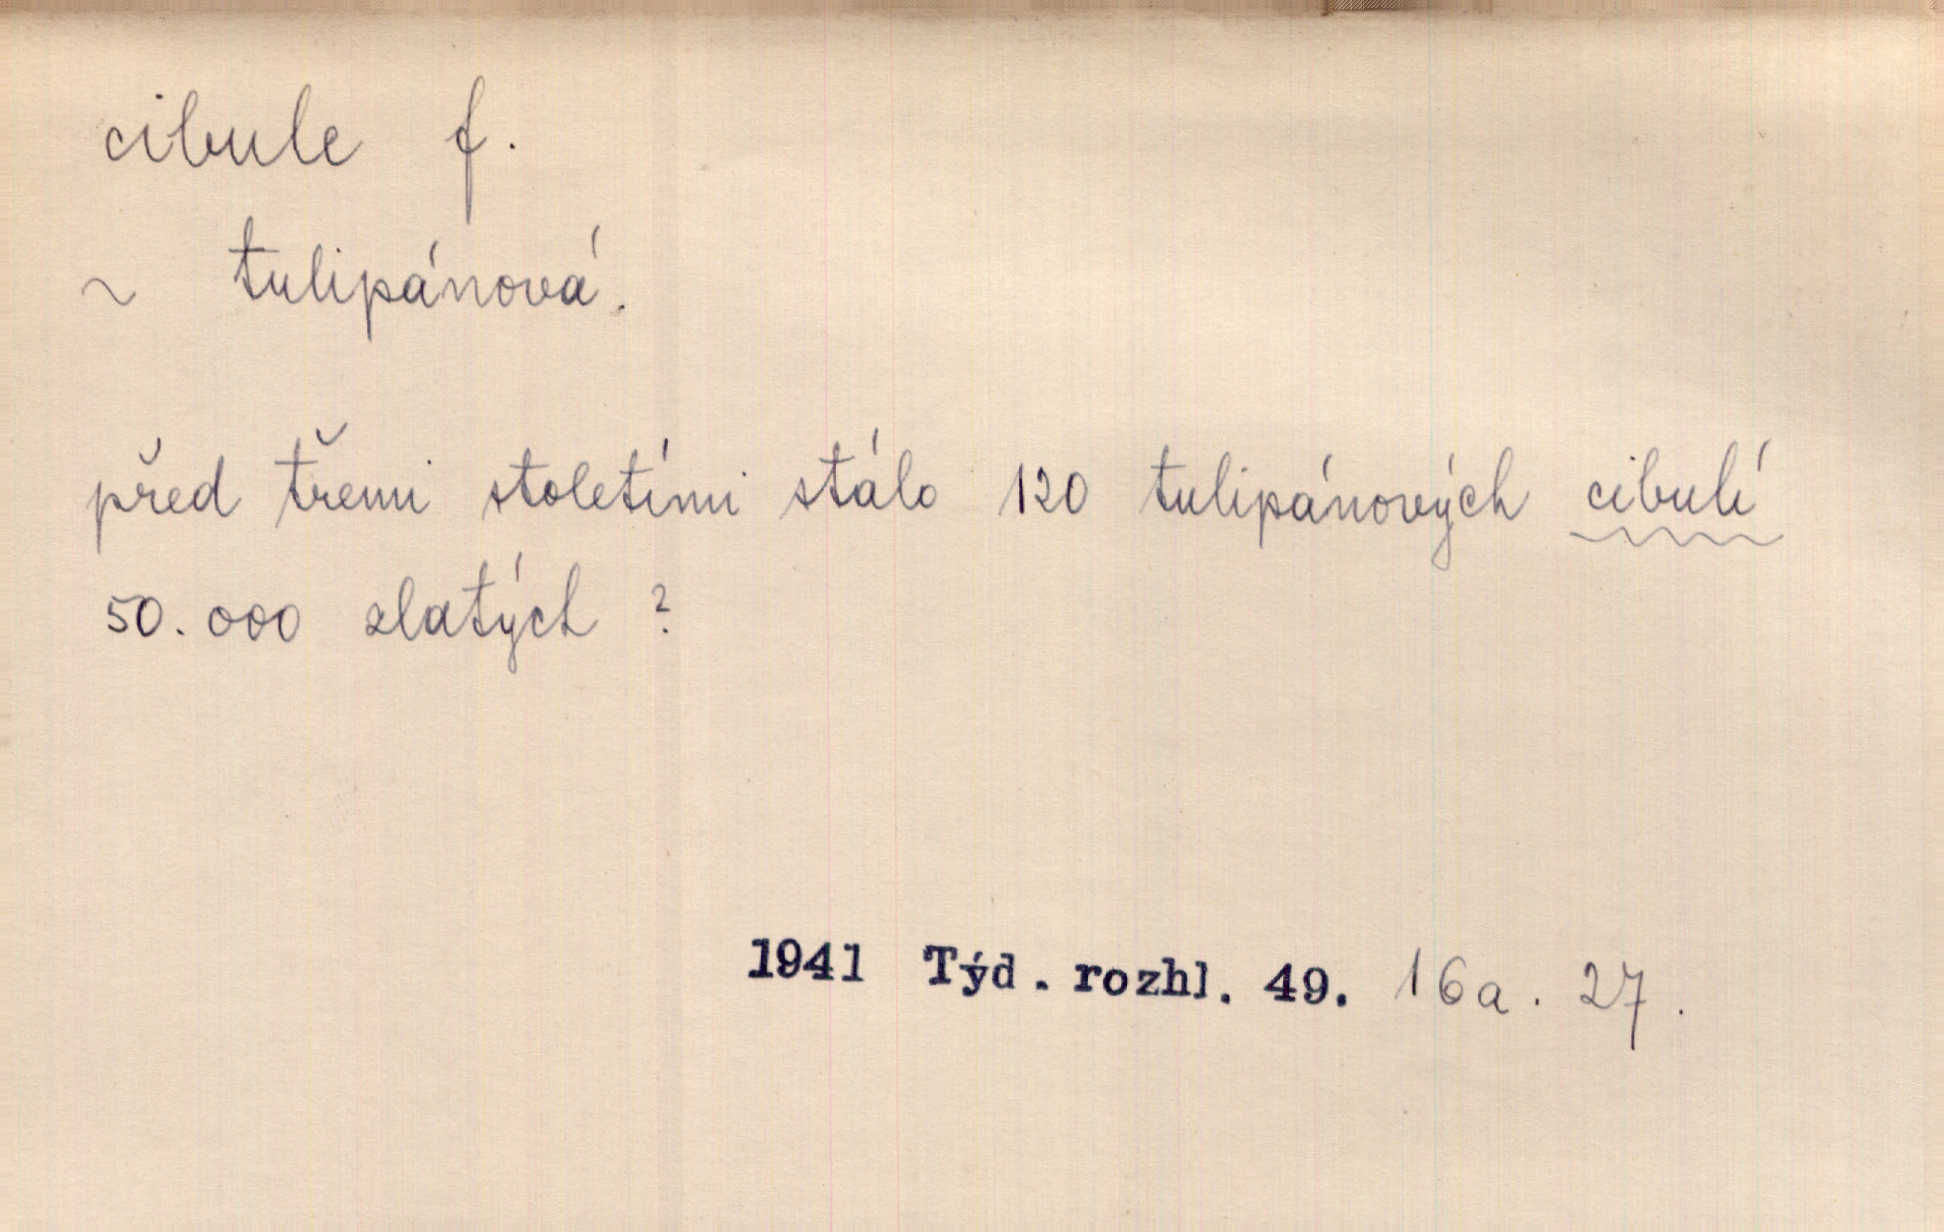 cibule f.
~ tulipánová.
před třemi stoletími stálo 120 tulipánových cibulí
50.000 zlatých ?
1941 Týd. rozhl. 49. 16a. 27.